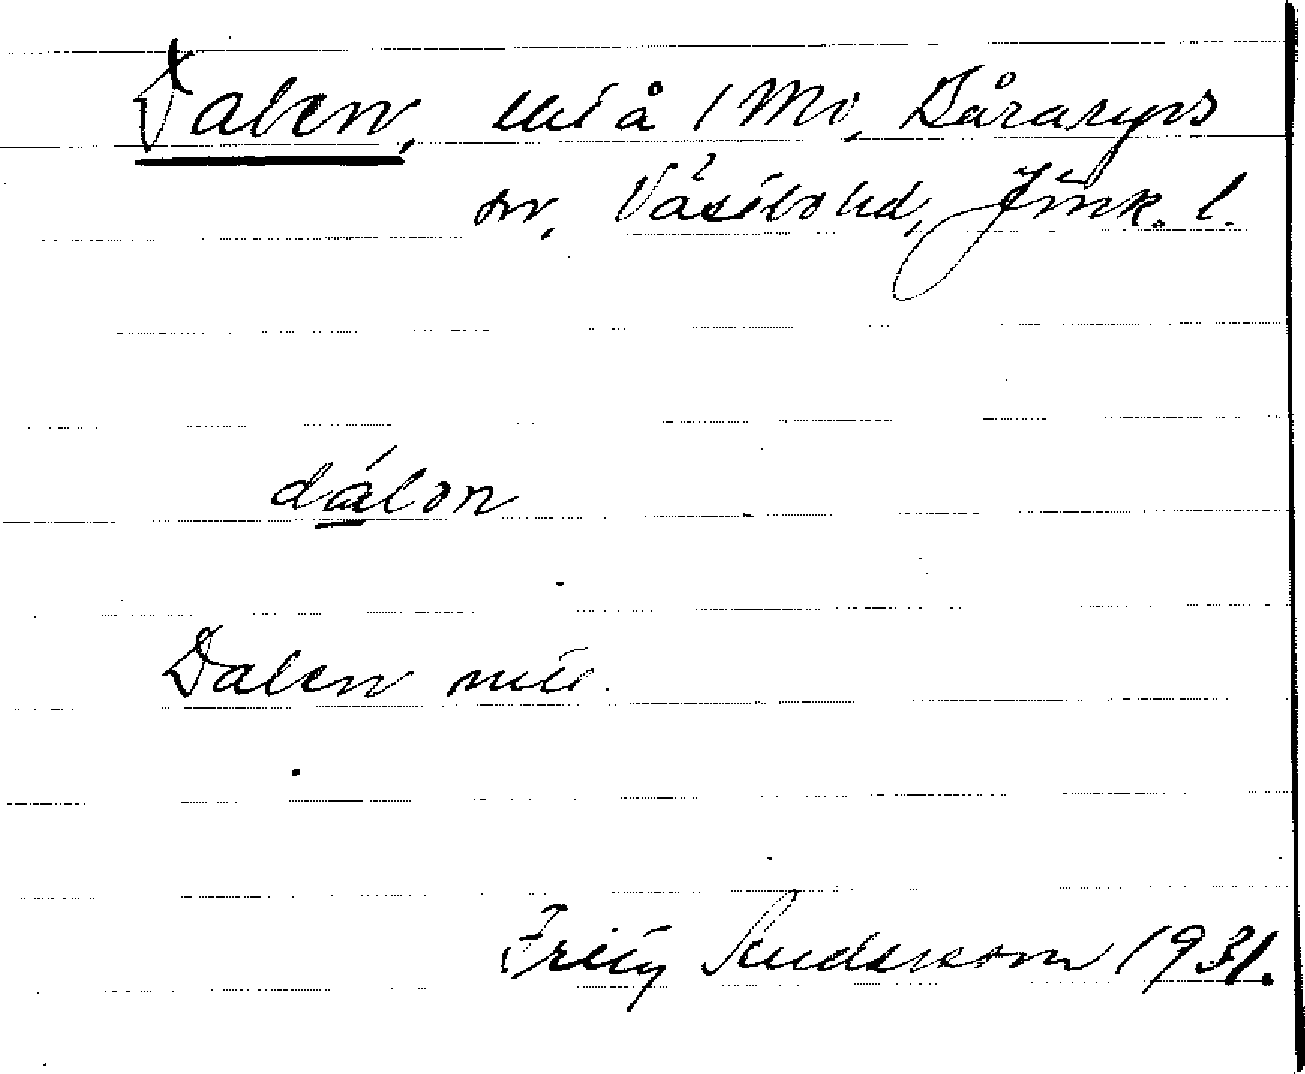 Dalen, utj å 1 Mo, Båraryps
sn, Västbo hd, Jönk. l.
dálon
Dalen mtl.
Fritz Andersson 1931.